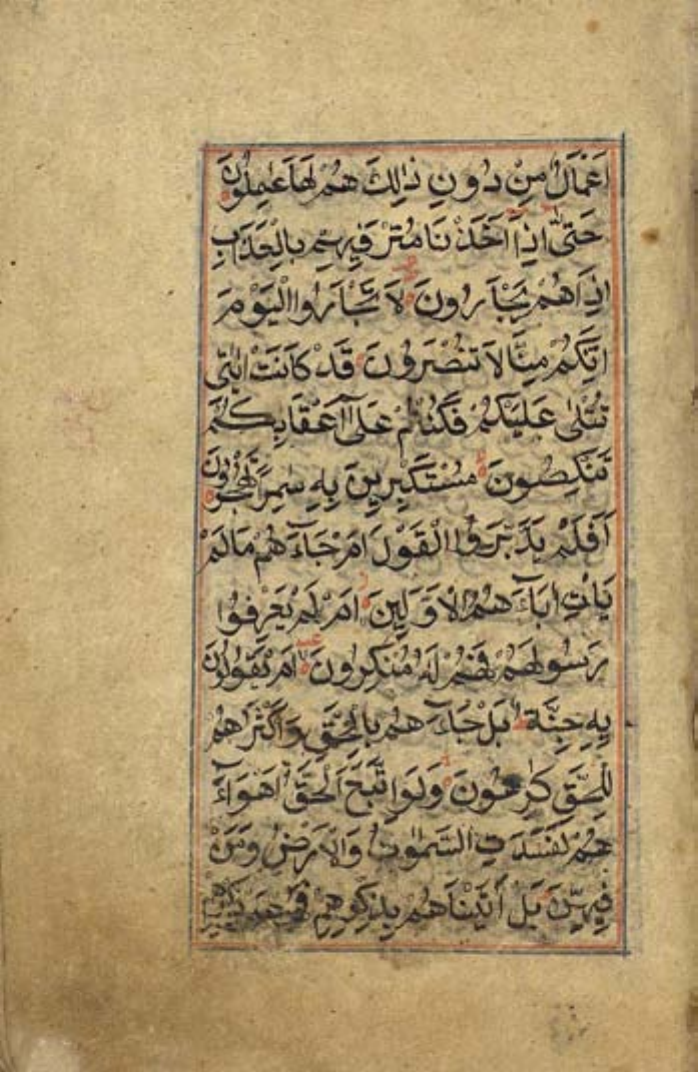 اَعْمَالٌ مِنْ دُونِ ذٰلِكَ هُمْ لَهَا عٰمِلُوْنَ
حَتّٰى اِذَا اَخَذْنَا مُتْرَفِيْهِمْ بِالْعَذَابِ
اِذَا هُمْ يَجْاَرُونَ لَا تَجْاَرُوا الْيَوْمَ
اِنَّكُمْ مِنَّا لَا تُنْصَرُونَ قَدْ كَانَتْ اٰيٰتِى
تُتْلٰى عَلَيْكُمْ فَكُنْتُمْ عَلٰى اَعْقَابِكُمْ
تَنْكِصُونَ مُسْتَكْبِرِيْنَ بِهٖ سٰمِرًا تَهْجُرُوْنَ
اَفَلَمْ يَدَّبَّرُوا الْقَوْلَ اَمْ جَآءَهُمْ مَا لَمْ
يَاْتِ اٰبَآءَهُمُ الْاَوَّلِيْنَ اَمْ لَمْ يَعْرِفُوا
رَسُولَهُمْ فَهُمْ لَهٗ مُنْكِرُونَ اَمْ يَقُولُوْنَ
بِهٖ جِنَّةٌ بَلْ جَآءَهُمْ بِالْحَقِّ وَاَكْثَرُهُمْ
لِلْحَقِّ كٰرِهُونَ وَلَوِ اتَّبَعَ الْحَقُّ اَهْوَآءَ
هُمْ لَفَسَدَتِ السَّمٰوٰتُ وَالْاَرْضُ وَمَنْ
فِيْهِنَّ بَلْ اَتَيْنَاهُمْ بِذِكْرِهِمْ فَهُمْ عَنْ ذِكْرِهِمْ